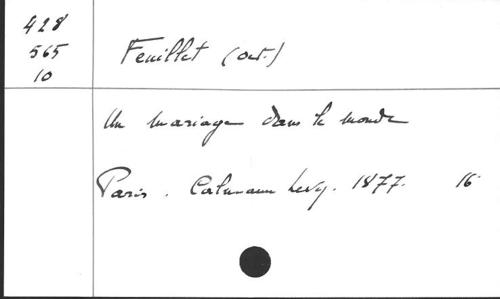 428
565
10
Feuillet (oct.)
Un mariage dans le monde
Paris. Calmann Levy. 1877. 16